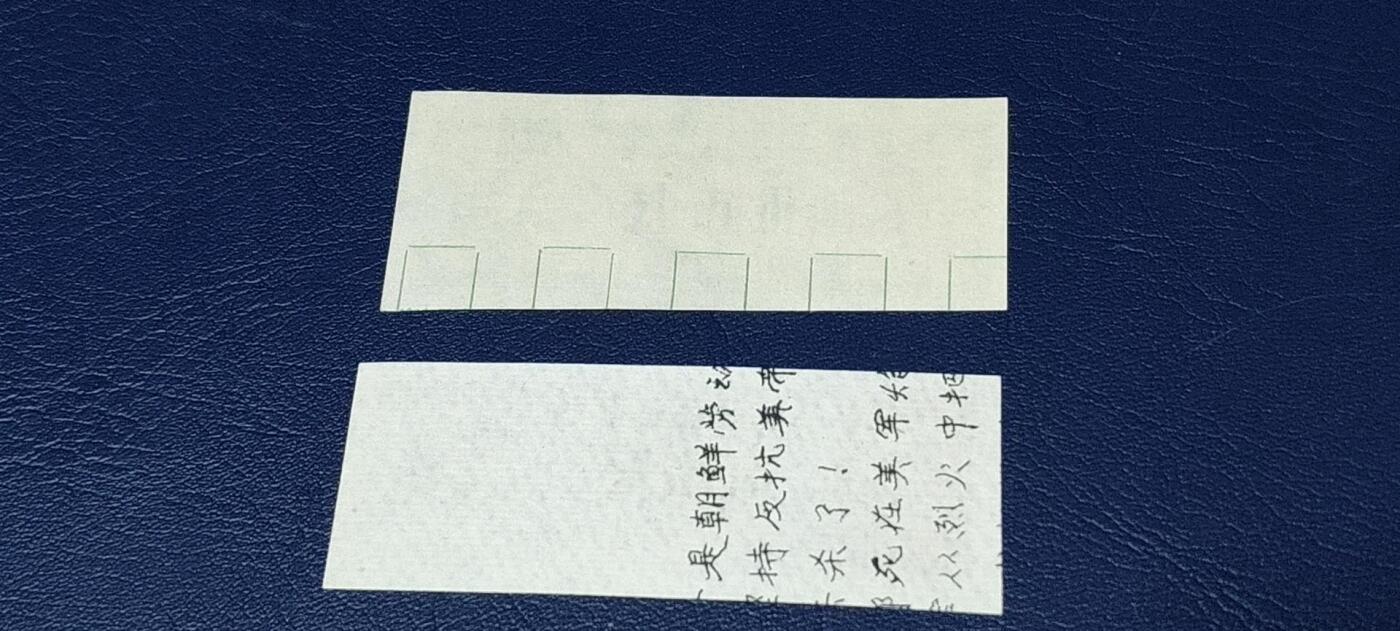 是朝鲜劳动
持反抗美帝
杀了！
死在美军
从烈火中把